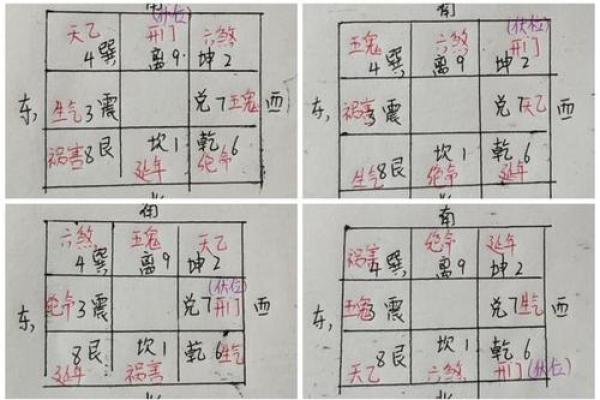 (伏位)
天乙 开门 六煞
4巽 离9 坤2
东, 生气3震 兑7五鬼 西
祸害8艮 坎1 乾6
延年 绝命
南 (伏位)
五鬼 六煞 开门
4巽 离9 坤2
东, 祸害3震 兑7天乙 西
生气8艮 坎1 乾6
绝命 延年
南
六煞 五鬼 天乙
4巽 离9 坤2
(伏位)
东, 绝命3震 兑7开门 西
8艮 坎1 乾6生气
延年 祸害
南
祸害 绝命 延年
4巽 离9 坤2
东, 五鬼3震 兑7生气 西
8艮 坎1 乾6
天乙 六煞 开门(伏位)